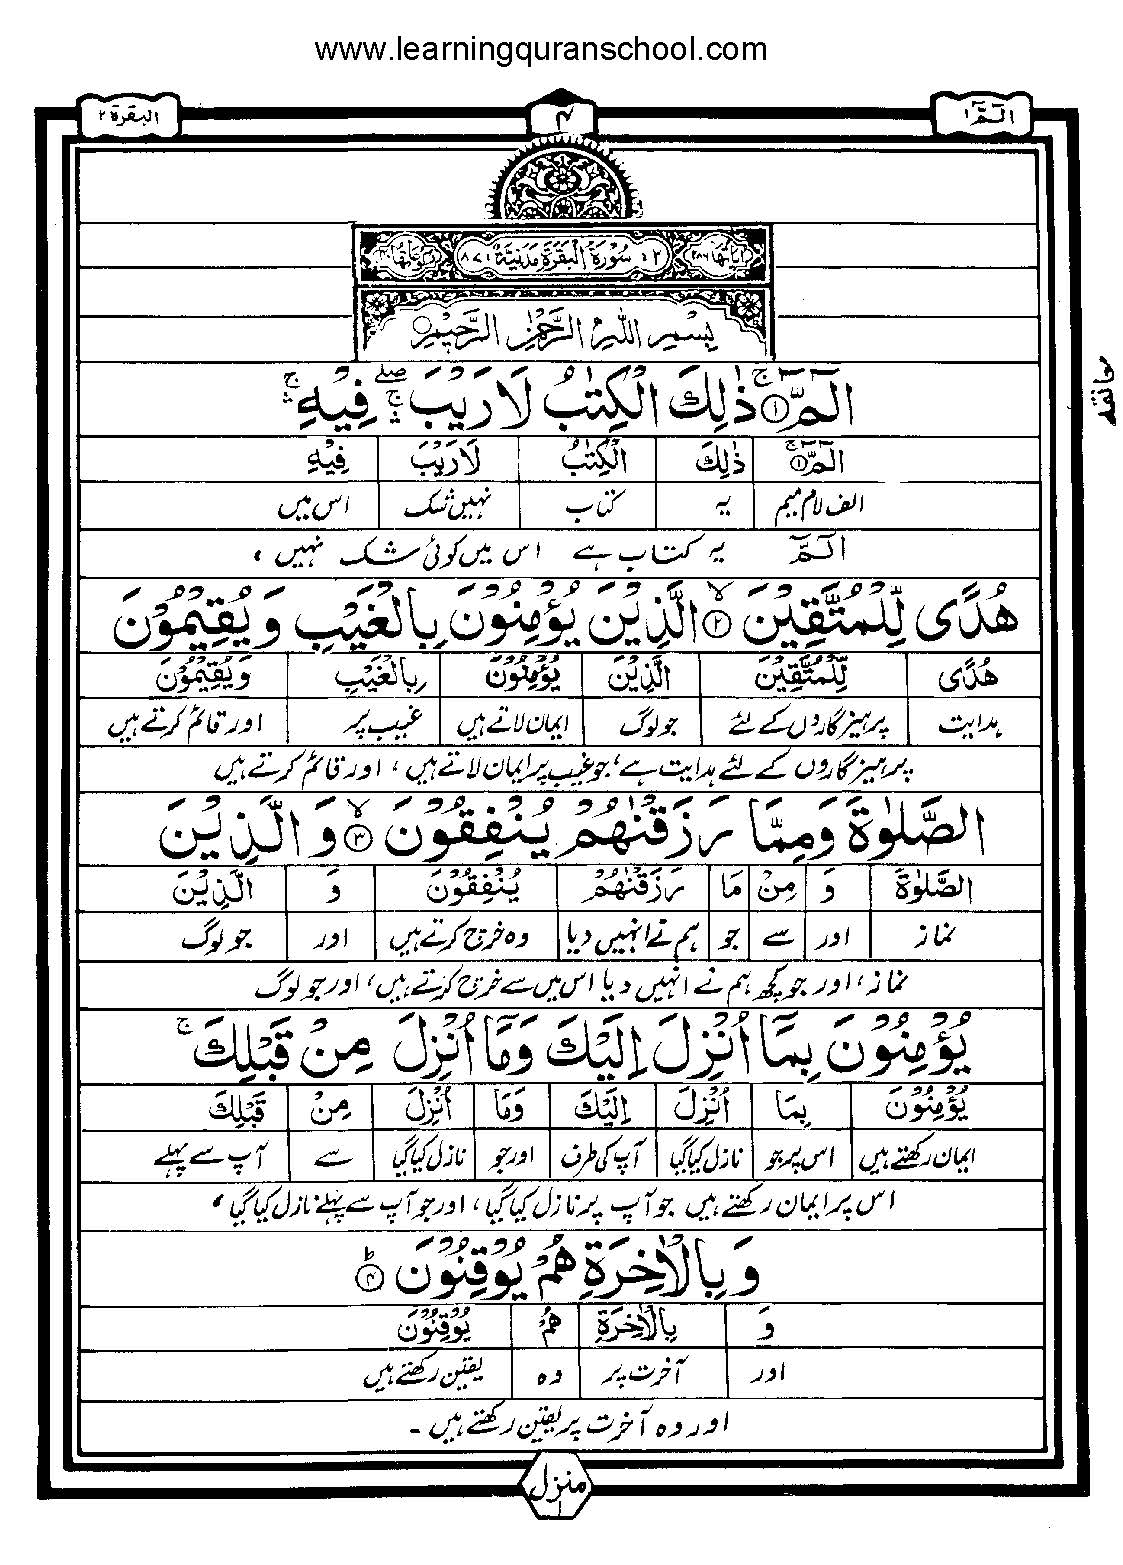 www.learningquranschool.com
الٓمّٓ ۱
۴
البقرة ۲
اٰیَاتُهَا ۲۸۶
۲: سُوْرَةُ الْبَقَرَةِ مَدَنِیَّةٌ : ۸۷
بِسْمِ اللّٰهِ الرَّحْمٰنِ الرَّحِیْمِ ○
معانقه
الٓمّٓ ۚ﴿۱﴾ ذٰلِكَ الْكِتٰبُ لَا رَیْبَ ۛۖۚ فِیْهِ ۛۚ
الٓمّٓ ۚ﴿۱﴾ ذٰلِكَ الْكِتٰبُ لَا رَیْبَ فِیْهِ
الف لام میم یہ کتاب نہیں شک اس میں
الٓمّٓ یہ کتاب ہے اس میں کوئی شک نہیں،
هُدًی لِّلْمُتَّقِیْنَ ۙ﴿۲﴾ الَّذِیْنَ یُؤْمِنُوْنَ بِالْغَیْبِ وَیُقِیْمُوْنَ
هُدًی لِّلْمُتَّقِیْنَ الَّذِیْنَ یُؤْمِنُوْنَ بِالْغَیْبِ وَیُقِیْمُوْنَ
ہدایت پرہیزگاروں کے لئے جو لوگ ایمان لاتے ہیں غیب پر اور قائم کرتے ہیں
پرہیزگاروں کے لئے ہدایت ہے، جو غیب پر ایمان لاتے ہیں، اور قائم کرتے ہیں
الصَّلٰوةَ وَمِمَّا رَزَقْنٰهُمْ یُنْفِقُوْنَ ۙ﴿۳﴾ وَالَّذِیْنَ
الصَّلٰوةَ وَ مِنْ مَا رَزَقْنٰهُمْ یُنْفِقُوْنَ وَ الَّذِیْنَ
نماز اور سے جو ہم نے انہیں دیا وہ خرچ کرتے ہیں اور جو لوگ
نماز، اور جو کچھ ہم نے انہیں دیا اس میں سے خرچ کرتے ہیں، اور جو لوگ
یُؤْمِنُوْنَ بِمَآ اُنْزِلَ اِلَیْكَ وَمَآ اُنْزِلَ مِنْ قَبْلِكَ ۚ
یُؤْمِنُوْنَ بِمَا اُنْزِلَ اِلَیْكَ وَمَا اُنْزِلَ مِنْ قَبْلِكَ
ایمان رکھتے ہیں اس پر جو نازل کیا گیا آپ کی طرف اور جو نازل کیا گیا سے آپ سے پہلے
اس پر ایمان رکھتے ہیں جو آپ پر نازل کیا گیا، اور جو آپ سے پہلے نازل کیا گیا،
وَبِالْاٰخِرَةِ هُمْ یُوْقِنُوْنَ ؕ﴿۴﴾
وَ بِالْاٰخِرَةِ هُمْ یُوْقِنُوْنَ
اور آخرت پر وہ یقین رکھتے ہیں
اور وہ آخرت پر یقین رکھتے ہیں ۔
منزل ۱